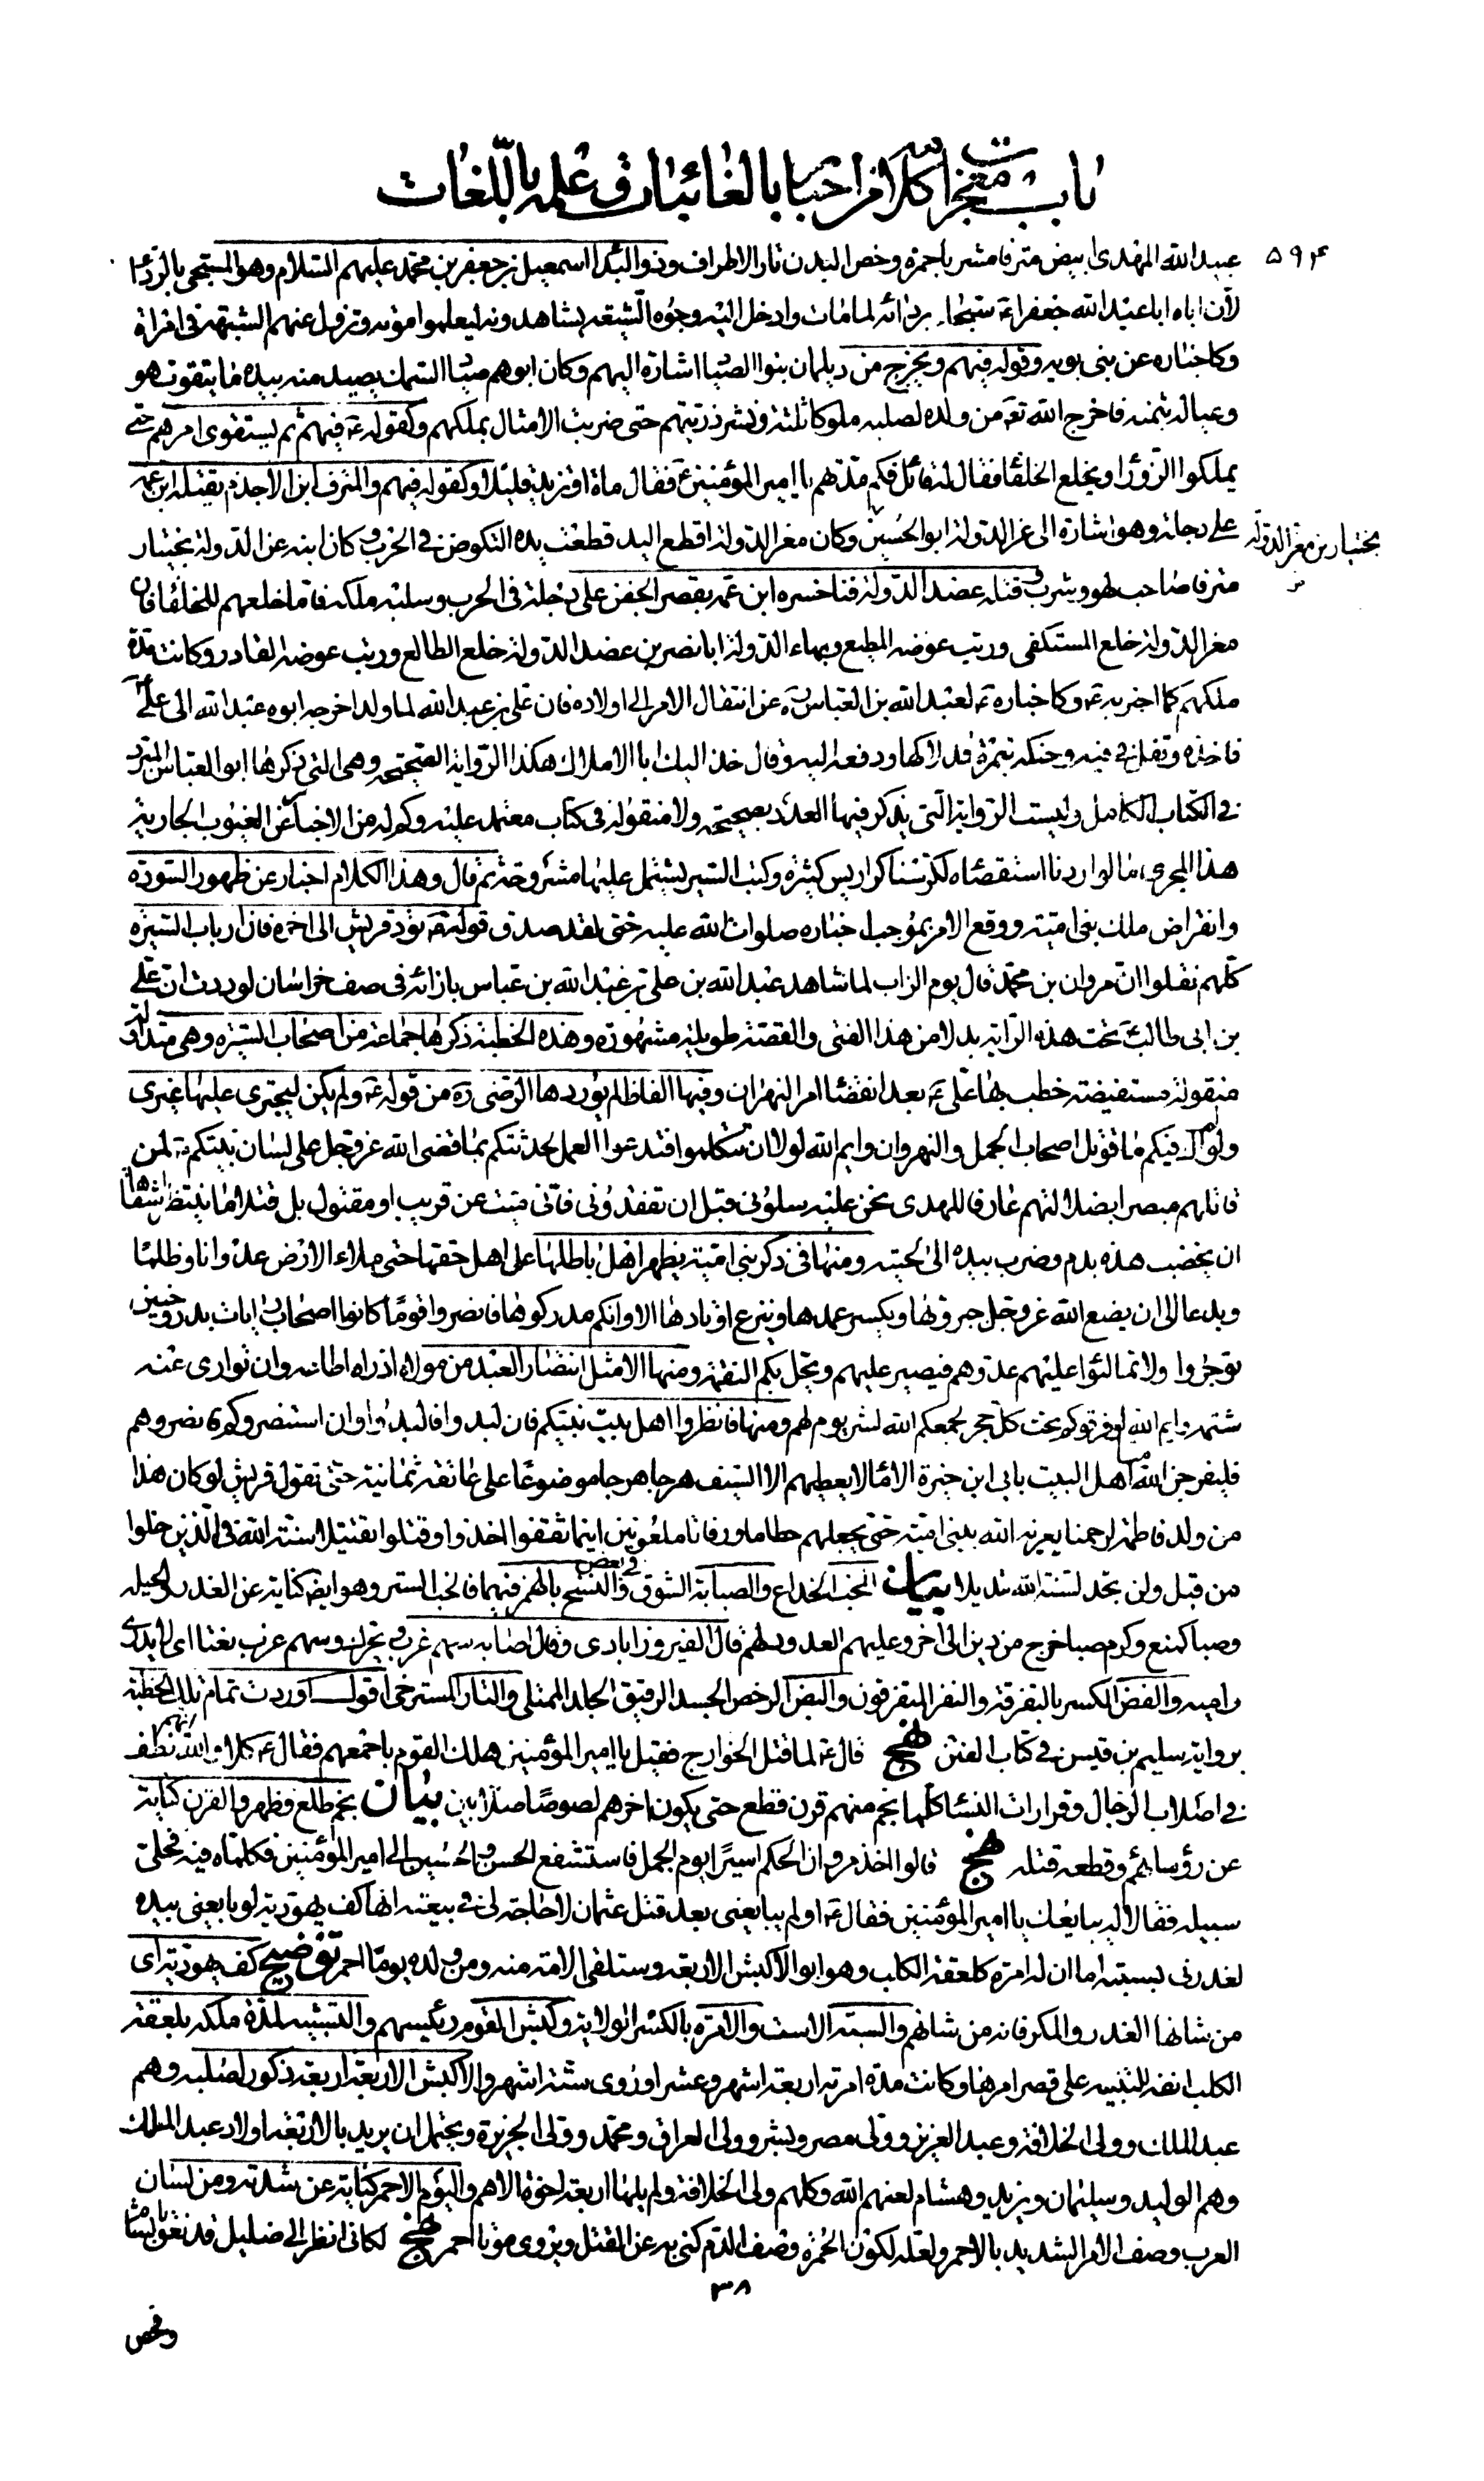 باب معجزات كلامه من اخباره بالغائبات وعلمه باللغات
٥٩۴
عبيد الله المهدى ابيض مترفا مشربا حمرة رخص البدن تار الاطراف وذو البداء اسمعيل بن جعفر بن محمد عليهم السلام وهو المسجى بالرداء
لان اباه ابا عبد الله جعفرا ع سجاه بردائه لما مات وادخل اليه وجوه الشيعة يشاهدونه ليعلموا موته وتزول عنهم الشبهة فى امره
وكاخباره عن بنى بويه وقوله فيهم ويخرج من ديلمان بنوا الصياد اشارة اليهم وكان ابوهم صياد السمك يصيد منه بيده ما يتقوت هو
وعياله بثمنه فاخرج الله تع من ولده لصلبه ملوكا ثلثة ونشر ذريتهم حتى ضربت الامثال بملكهم وكقوله ع فيهم ثم يستقوى امرهم حتى
يملكوا الزوراء ويخلع الخلفاء فقال له قائل فكم مدتهم يا امير المؤمنين ع فقال مائة او تزيد قليلا وكقوله فيهم والمترف ابن الاجذم يقتله ابن عمه
على دجلة وهو اشارة الى عز الدولة بختيار بن معز الدولة ابو الحسين وكان معز الدولة اقطع اليد قطعت يده النكوص فى الحرب وكان ابنه عز الدولة بختيار
مترفا صاحب لهو وشرب قتله عضد الدولة فناخسره ابن عمه بقصر الجفن على دجلة فى الحرب وسلبه ملكه فاما خلعهم للخلفاء فان
معز الدولة خلع المستكفى ورتب عوضه المطيع وبهاء الدولة ابا نصر بن عضد الدولة خلع الطائع ورتب عوضه القادر وكانت مدة
ملكهم كما اخبر به ع وكاخباره ع لعبد الله بن العباس ره عن انتقال الامر الى اولاده فان على بن عبد الله لما ولد اخرجه ابوه عبد الله الى على ع
فاخذه وتفل فى فيه وحنكه بتمرة قد لاكها ودفعه اليه وقال خذ اليك ابا الاملاك هكذا الرواية الصحيحة وهى التى ذكرها ابو العباس المبرد
فى الكتاب الكامل وليست الرواية التى يذكر فيها العدد بصحيحة ولا منقولة فى كتاب معتمد عليه وكم له من الاخبار عن الغيوب الجارية
هذا المجرى مما لو اردنا استقصاه لكرسنا كراريس كثيرة وكتب السير يشتمل عليها مشروحة ثم قال وهذا الكلام اخبار عن ظهور المسودة
وانقراض ملك بنى امية ووقع الامر بموجب اخباره صلوات الله عليه حتى لقد صدق قوله ع تود قريش الى اخره فان ارباب السيرة
كلهم نقلوا ان مروان بن محمد قال يوم الزاب لما شاهد عبد الله بن على بن عبد الله بن عباس بازائه فى صف خراسان لوددت ان على
بن ابى طالب ع تحت هذه الراية بدلا من هذا الفتى والقصة طويلة مشهورة وهذه الخطبة ذكرها جماعة من اصحاب السيرة وهى متداولة
منقولة مستفيضة خطب بها على ع بعد انقضاء امر النهروان وفيها الفاظ لم يوردها الرضى ره من قوله ع ولم يكن ليجترى عليها غيرى
ولو لم اك فيكم ما قوتل اصحاب الجمل والنهروان وايم الله لولا ان تتكلموا فتدعوا العمل لحدثتكم بما قضى الله عز وجل على لسان نبيكم ص لمن
قاتلهم مبصرا بضلالتهم عارفا للهدى نحن عليه سلونى قبل ان تفقدونى فانى ميت عن قريب او مقتول بل قتلا ما ينتظر اشقاها
ان يخضب هذه بدم وضرب بيده الى لحيته ومنها فى ذكر بنى امية يظهر اهل باطلها على اهل حقها حتى يملاء الارض عدوانا وظلما
وبدعا الى ان يضع الله عز وجل جبروتها ويكسر عمدها وينزع اوتادها الا وانكم مدركوها فانصروا قوما كانوا اصحاب رايات بدر وحنين
توجروا ولا تمالئوا عليهم عدوهم فيصير عليهم ويحل بكم النقمة ومنها الا مثل انتصار العبد من مولاه اذا راه اطاعه وان توارى عنه
شتمه وايم الله لو فرقوكم تحت كل حجر لجمعكم الله لشر يوم لهم ومنها فانظروا اهل بيت نبيكم فان لبدوا فالبدوا وان استنصروكم فانصروهم
فليفرجن الله منا اهل البيت بابى ابن خيرة الاماء لا يعطيهم الا السيف هرجا هرجا موضوعا على عاتقه ثمانية حتى تقول قريش لو كان هذا
من ولد فاطمة لرحمنا يغريه الله ببنى امية حتى يجعلهم حطاما ورفاتا ملعونين اينما ثقفوا اخذوا وقتلوا تقتيلا سنة الله فى الذين خلوا
من قبل ولن تجد لسنة الله تبديلا بيان الخب الخداع والصبابة الشوق وفى بعض النسخ بالهمز فيهما فالخبا الستر وهو ايض كناية عن الغدر والحيلة
وصبا كمنع وكرم صبا خرج من دين الى اخر وعليهم العدو دلهم قال الفيروزابادى وقال اصابه سهم غرب ويحرك وسهم غرب نعتا اى لا يدرى
راميه والفض الكسر بالتفرقة والنفر المتفرقون والبض الرخص الجسد الرقيق الجلد الممتلى والتار المسترخى اقول اوردت تمام تلك الخطبة
برواية سليم بن قيس فى كتاب الفتن نهج قال ع لما قتل الخوارج فقيل يا امير المؤمنين هلك القوم باجمعهم فقال ع كلا والله انهم نطف
فى اصلاب الرجال وقرارات النساء كلما نجم منهم قرن قطع حتى يكون اخرهم لصوصا صلابين بيان نجم طلع وظهر والقرن كناية
عن رؤسائهم وقطعه قتله نهج قالوا اخذ مروان الحكم اسيرا يوم الجمل فاستشفع الحسن والحسين الى امير المؤمنين فكلماه فيه فخلى
سبيله فقالا له يبايعك يا امير المؤمنين فقال ع اولم يبايعنى بعد قتل عثمان لا حاجة لى فى بيعته انها كف يهودية لو بايعنى بيده
لغدرنى بسبته اما ان له امرة كلعقة الكلب وهو ابو الاكبش الاربعة وستلقى الامة منه ومن ولده يوما احمر توضيح كف يهودية اى
من شانها الغدر والمكر فانه من شانهم والسبة الاست والامرة بالكسر الولاية وكبش القوم رئيسهم والتشبيه لمدة ملكه بلعقة
الكلب انفه للتنبيه على قصر امرها وكانت مدة امرته اربعة اشهر وعشرا وروى ستة اشهر والاكبش الاربعة اربعة ذكور لصلبه وهم
عبد الملك وولى الخلافة وعبد العزيز وولى مصر وبشر وولى العراق ومحمد وولى الجزيرة ويحتمل ان يريد بالاربعة اولاد عبد الملك
وهم الوليد وسليمان ويزيد وهشام لعنهم الله وكلهم ولى الخلافة ولم يلها اربعة اخوة الا هم واليوم الاحمر كناية عن شدته ومن لسان
العرب وصف الامر الشديد بالاحمر ولعله لكون الحمرة وصف الدم كنى به عن القتل ويروى موتا احمر نهج لكانى انظر الى ضليل قد نعق بالشام
بختيار بن معز الدولة
٣٨
وفحص